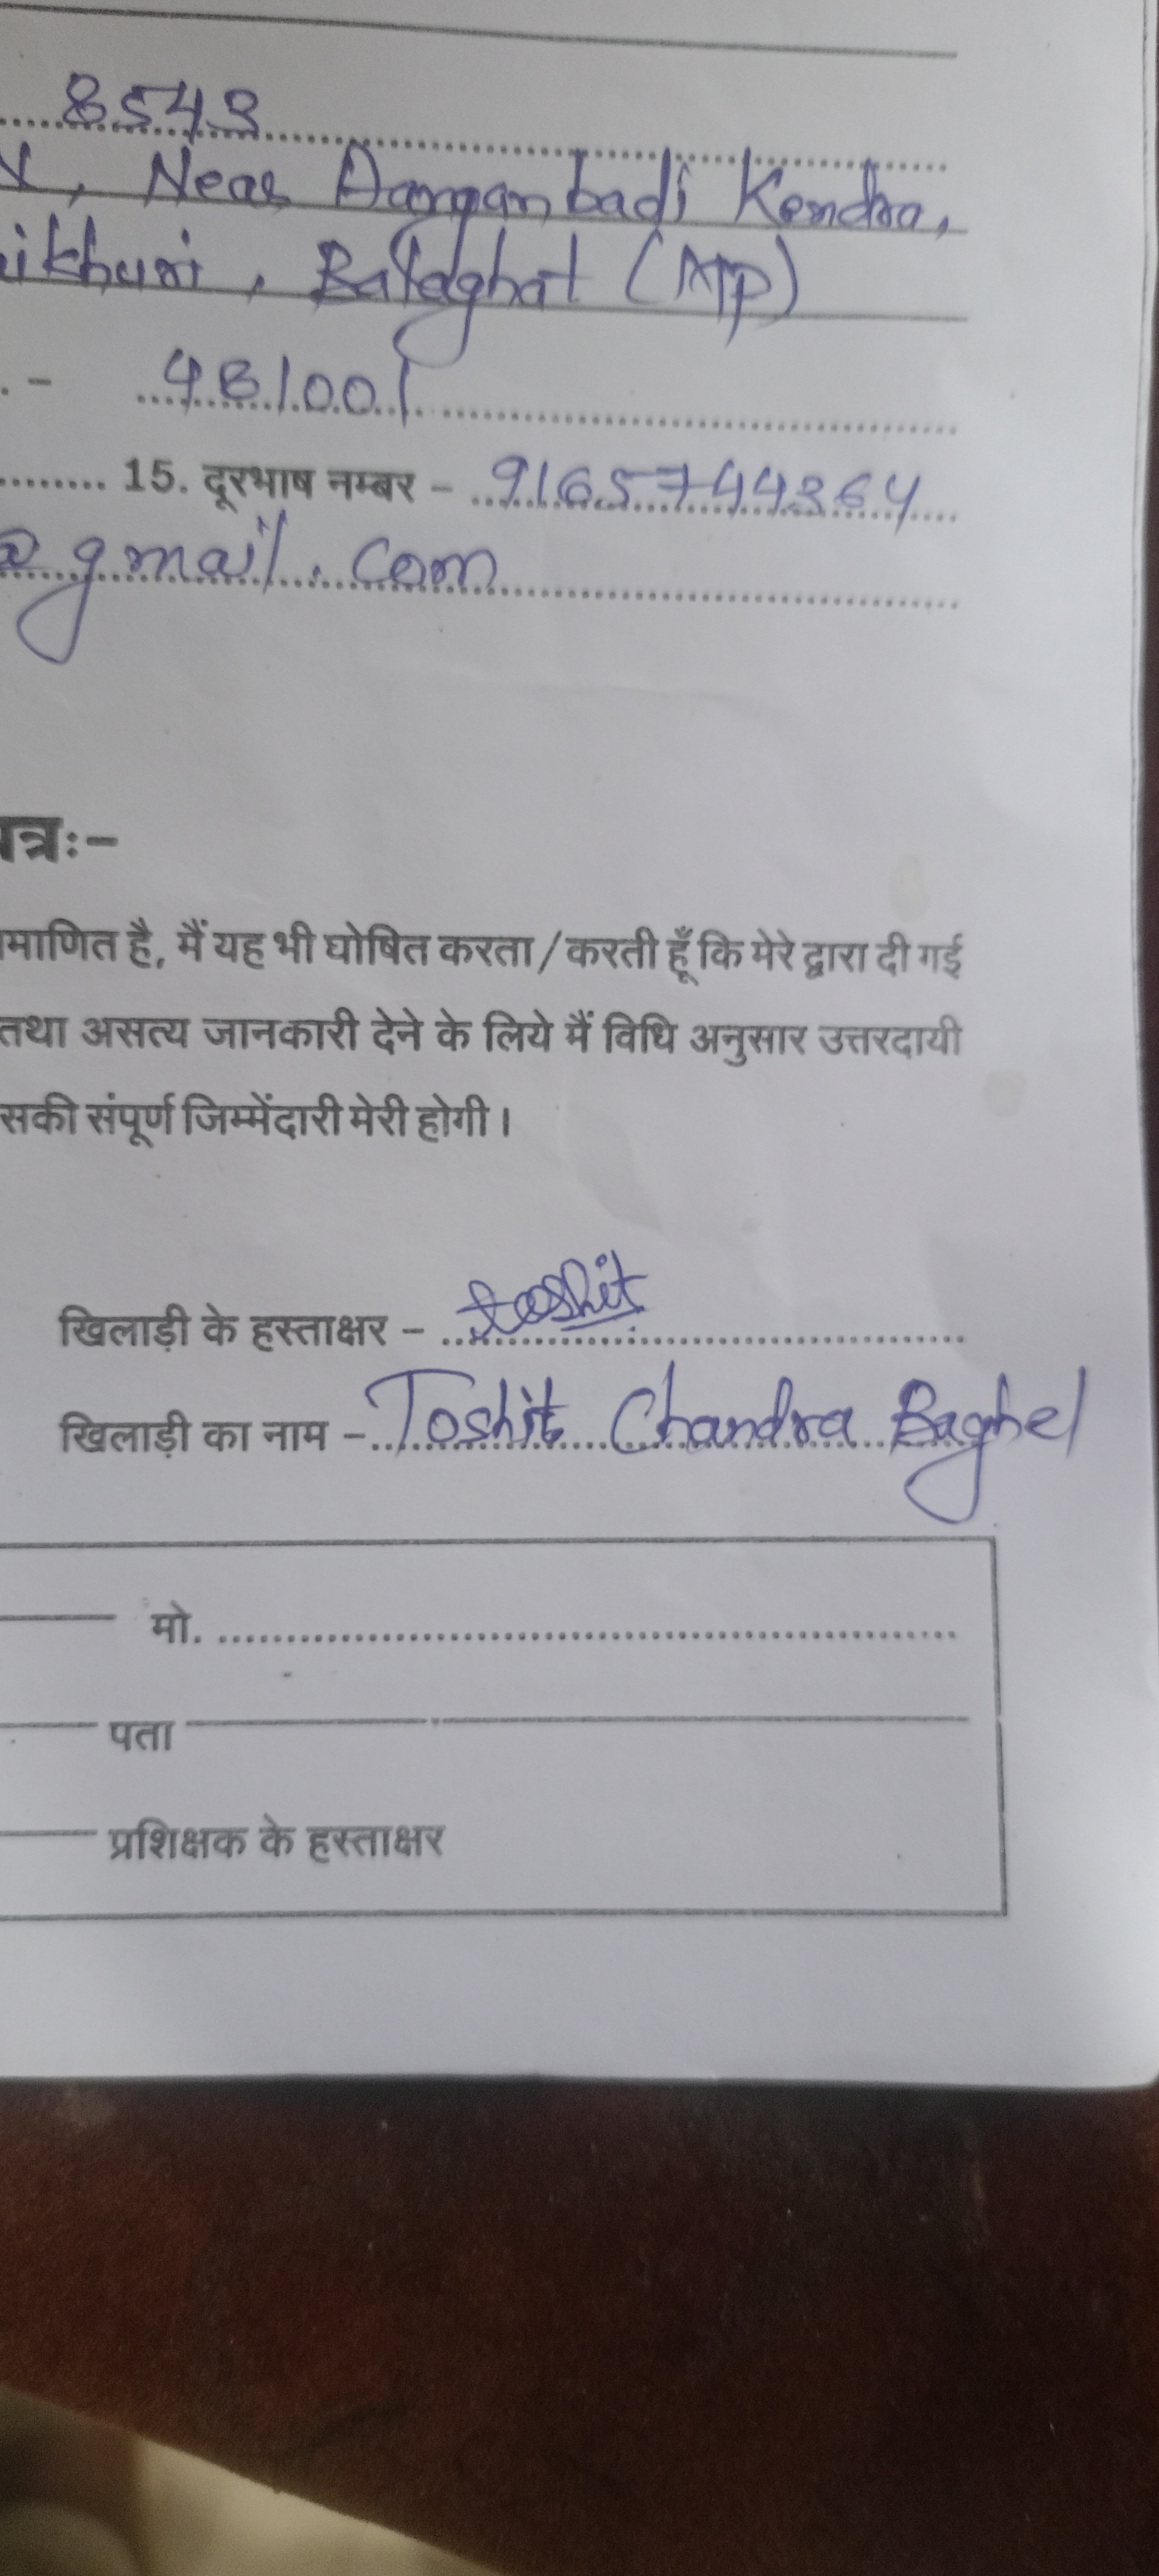 8543
Near Aanganbadi Kendra,
ikhuri, Balaghat (MP)
. - 481001
15. दूरभाष नम्बर - 9165744364
@gmail.com
पत्रः-
माणित है, मैं यह भी घोषित करता/करती हूँ कि मेरे द्वारा दी गई
तथा असत्य जानकारी देने के लिये मैं विधि अनुसार उत्तरदायी
सकी संपूर्ण जिम्मेंदारी मेरी होगी।
खिलाड़ी के हस्ताक्षर - toshit
खिलाड़ी का नाम - Toshit Chandra Baghel
मो.
पता
प्रशिक्षक के हस्ताक्षर